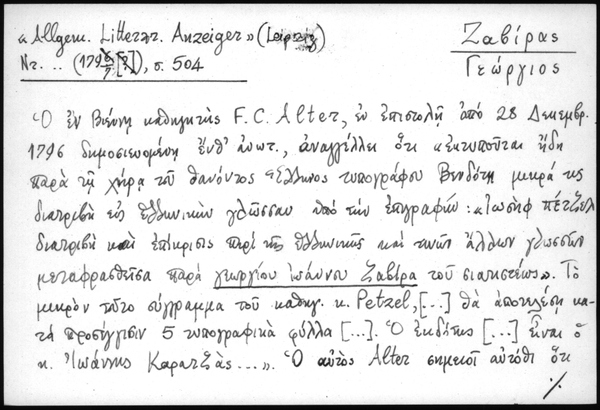 «Allgem. Litterar. Anzeiger» (Leipzig)
Ζαβίρας
Γεώργιος
Nr. .. (1796/7 [?]), σ. 504
Ὁ ἐν Βιέννῃ καθηγητὴς F. C. Alter, ἐν ἐπιστολῇ ἀπὸ 28 Δεκεμβρ.
1796 δημοσιευομένῃ ἔνθ' ἀνωτ., ἀναγγέλλει ὅτι «ἐκτυποῦται ἤδη
παρὰ τῇ χήρᾳ τοῦ θανόντος Ἕλληνος τυπογράφου Βενδότη μικρά τις
διατριβὴ εἰς Ἑλληνικὴν γλῶσσαν ὑπὸ τὴν ἐπιγραφήν: «Ἰωσὴφ Πέτζελ
διατριβὴ καὶ ἐπίκρισις περὶ τῆς Ἑλληνικῆς καὶ τινῶν ἄλλων γλωσσῶν
μεταφρασθεῖσα παρὰ γεωργίου ἰωάννου Ζαβίρα τοῦ σιατιστέως». Τὸ
μικρὸν τοῦτο σύγγραμμα τοῦ καθηγ. κ. Petzel, [...] θὰ ἀποτελέσῃ κα-
τὰ προσέγγισιν 5 τυπογραφικὰ φύλλα [...]. Ὁ ἐκδότης [...] εἶναι ὁ
κ. Ἰωάννης Καρατζᾶς ...». Ὁ αὐτὸς Alter σημειοῖ αὐτόθι ὅτι
./.